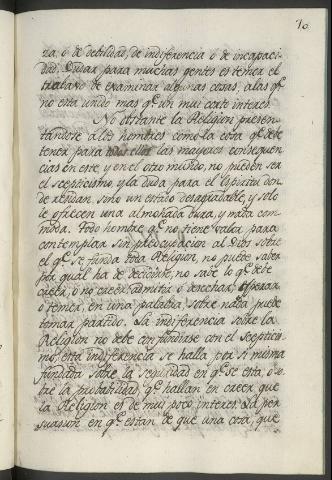 70.
za, ó de debilidad, de indiferencia ó de incapaci-
dad. Dudar para muchas gentes es temer el
trabajo de examinar algunas cosas, a las q.e
no está unido mas q.e un mui corto interes.
No obstante la Religion presen-
tandose a los hombres como la cosa q.e debe
tener para ellos las mayores consequen-
cias en este, y en el otro mundo, no pueden ser
el scepticismo, y la duda para el Espiritu don-
de residan, sino un estado desagradable, y solo
le ofrecen una almohada dura, y nada com-
moda. Todo hombre q.e no tiene valor para
contemplar sin preocupacion al Dios sobre
el q.e se funda toda Religion, no puede saber
por qual ha de decidirse, no sabe lo q.e debe
creer, ó no creer: admitir ó desechar: esperar
ó temer, en una palabra, sobre nada puede
tomar partido. La indiferencia sobre la
Religion no debe confundirse con el scepticis-
mo: esta indiferencia se halla por si misma
fundada sobre la seguridad en q.e se está, ó so-
bre la probabilidad, q.e hallan en creer que
la Religion es de mui poco interes. La per-
suasion en q.e estan de que una cosa, que